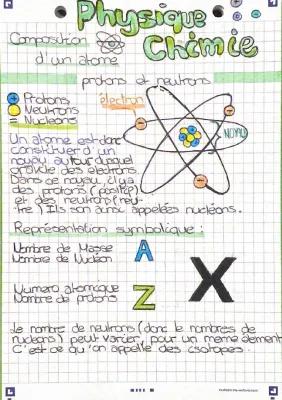 Physique
Chimie
Composition
d'un atome
protons et neutrons
Protons
électron
Neutrons
= Nucléons
NOYAU
Un atome est donc
constituer d'un
noyau autour duquel
gravite des électrons.
Dans ce noyau, il y a
des protons (positif)
et des neutrons (neu-
tre) Ils son aussi appelées nucléons.
Représentation symbolique :
Nombre de Masse
Nombre de Nucléon
A
X
Numero atomique
Nombre de protons
Z
Le nombre de neutrons (donc le nombres de
nucléons) peut varier, pour un meme élément
C'est ce qu'on appelle des isotopes.